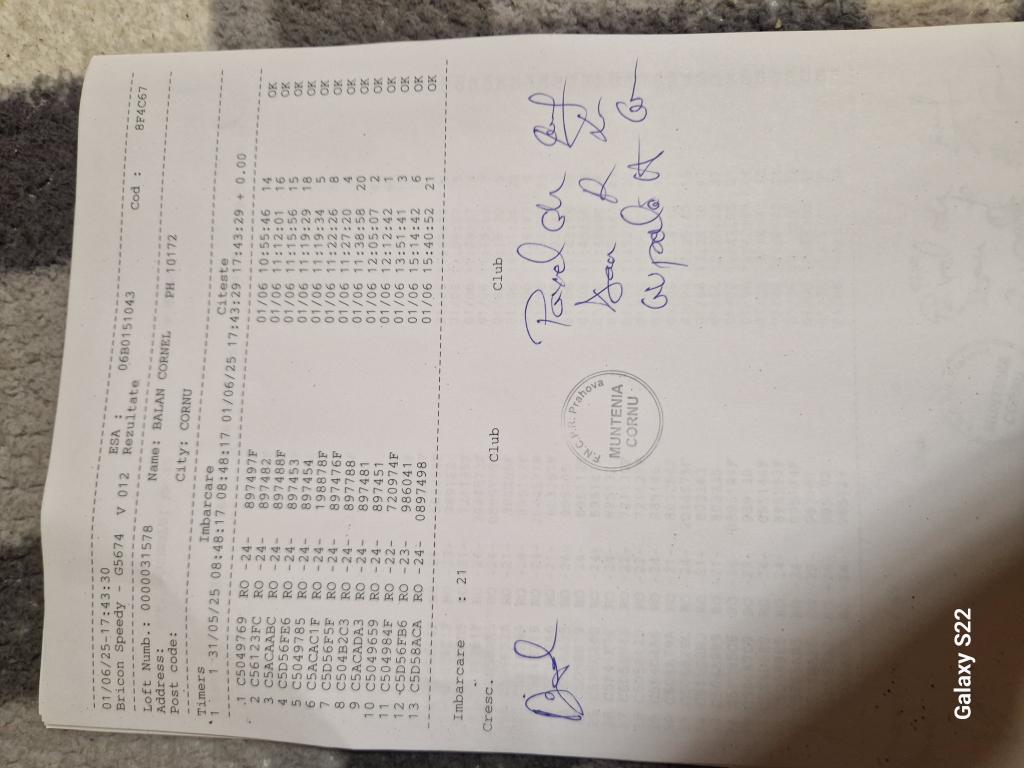 01/06/25-17:43:30
Bricon Speedy - G5674 V 012 ESA : 06B0151043
Rezultate
Loft Numb.: 0000031578 Name: BALAN CORNEL Cod : 8F4C67
Address: PH 10172
Post code: City: CORNU
Timers Imbarcare Citeste
1 1 31/05/25 08:48:17 08:48:17 01/06/25 17:43:29 17:43:29 + 0.00
1 C5049769 RO -24- 897497F 01/06 10:55:46 14 OK
2 C56123FC RO -24- 897482 01/06 11:12:01 16 OK
3 C5ACAABC RO -24- 897488F 01/06 11:15:56 15 OK
4 C5D56FE6 RO -24- 897453 01/06 11:19:29 18 OK
5 C5049785 RO -24- 897454 01/06 11:19:34 5 OK
6 C5ACAC1F RO -24- 198878F 01/06 11:22:26 8 OK
7 C5D56F5F RO -24- 897476F 01/06 11:27:20 4 OK
8 C504B2C3 RO -24- 897788 01/06 11:38:58 20 OK
9 C5ACADA3 RO -24- 897481 01/06 12:05:07 2 OK
10 C5049659 RO -24- 897451 01/06 12:12:42 1 OK
11 C504984F RO -22- 720974F 01/06 13:51:41 3 OK
12 C5D56FB6 RO -23- 986041 01/06 15:14:42 6 OK
13 C5D58ACA RO -24- 0897498 01/06 15:40:52 21 OK
Imbarcare : 21
Cresc. Club Club
F.N.C.P.R. Prahova
MUNTENIA
CORNU
Pavel
Galaxy S22